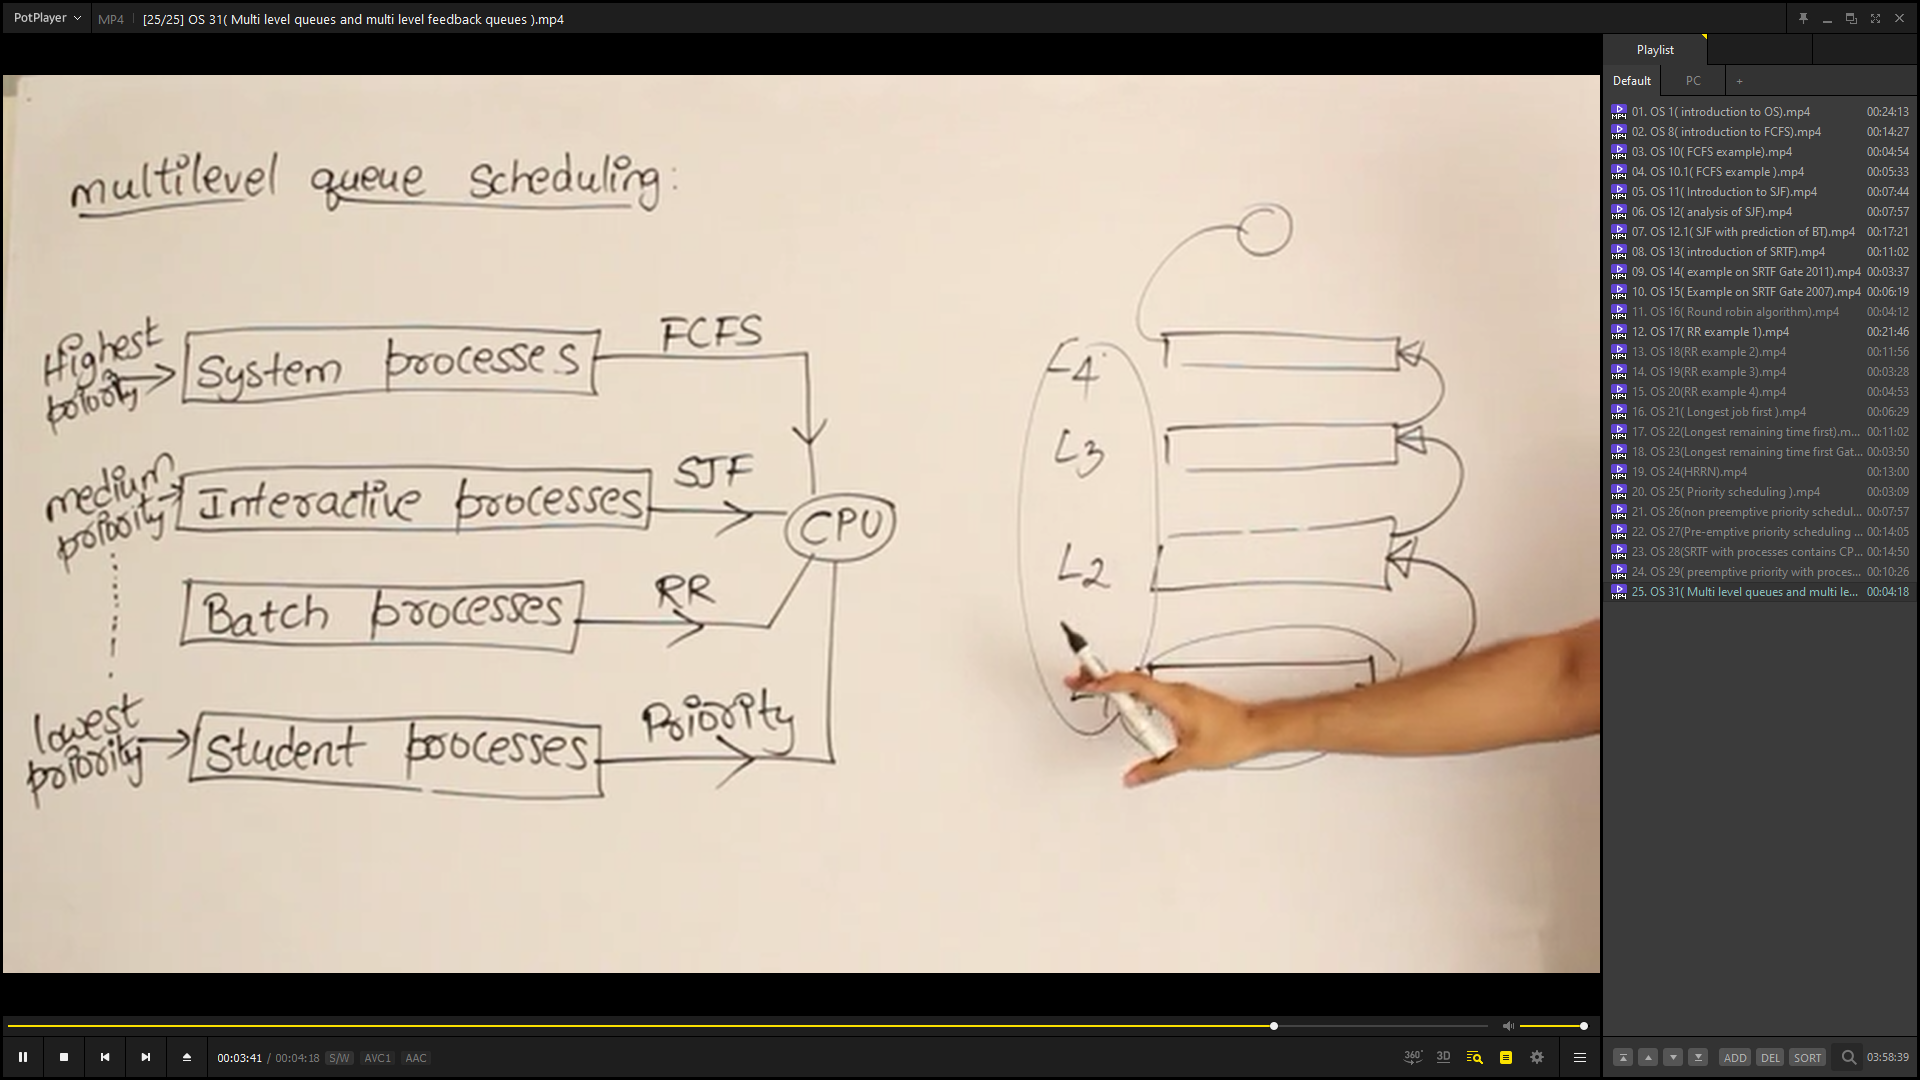 PotPlayer
MP4
[25/25] OS 31( Multi level queues and multi level feedback queues ).mp4
multilevel queue scheduling:
Highest priority
System processes
FCFS
medium priority
Interactive processes
SJF
CPU
Batch processes
RR
lowest priority
Student processes
Priority
L4
L3
L2
Playlist
Default
PC
+
01. OS 1( introduction to OS).mp4 00:24:13
02. OS 8( introduction to FCFS).mp4 00:14:27
03. OS 10( FCFS example).mp4 00:04:54
04. OS 10.1( FCFS example ).mp4 00:05:33
05. OS 11( Introduction to SJF).mp4 00:07:44
06. OS 12( analysis of SJF).mp4 00:07:57
07. OS 12.1( SJF with prediction of BT).mp4 00:17:21
08. OS 13( introduction of SRTF).mp4 00:11:02
09. OS 14( example on SRTF Gate 2011).mp4 00:03:37
10. OS 15( Example on SRTF Gate 2007).mp4 00:06:19
11. OS 16( Round robin algorithm).mp4 00:04:12
12. OS 17( RR example 1).mp4 00:21:46
13. OS 18(RR example 2).mp4 00:11:56
14. OS 19(RR example 3).mp4 00:03:28
15. OS 20(RR example 4).mp4 00:04:53
16. OS 21( Longest job first ).mp4 00:06:29
17. OS 22(Longest remaining time first).m... 00:11:02
18. OS 23(Longest remaining time first Gat... 00:03:50
19. OS 24(HRRN).mp4 00:13:00
20. OS 25( Priority scheduling ).mp4 00:03:09
21. OS 26(non preemptive priority schedul... 00:07:57
22. OS 27(Pre-emptive priority scheduling ... 00:14:05
23. OS 28(SRTF with processes contains CP... 00:14:50
24. OS 29( preemptive priority with proces... 00:10:26
25. OS 31( Multi level queues and multi le... 00:04:18
00:03:41 / 00:04:18 S/W AVC1 AAC
360° 3D
ADD DEL SORT 03:58:39